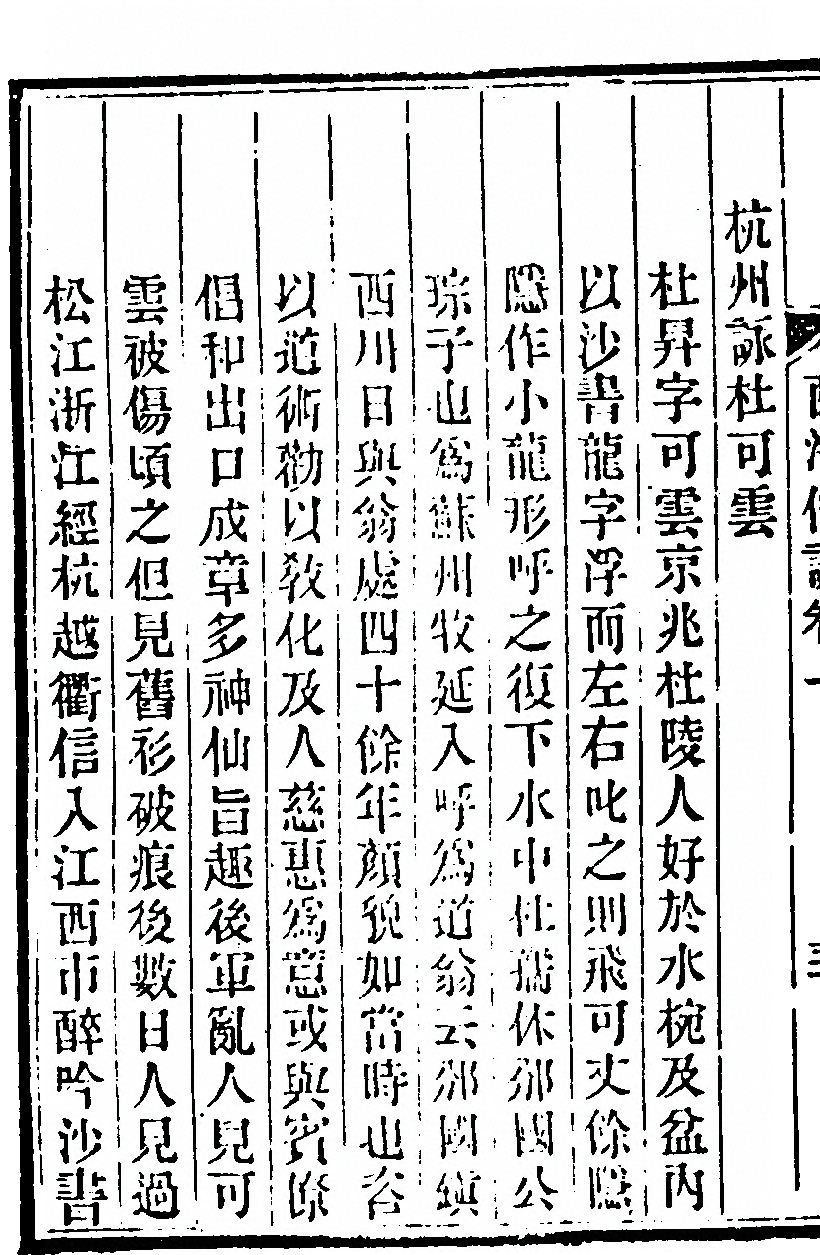 杭州詠杜可雲
杜昇字可雲京兆杜陵人好於水椀及盆內
以沙書龍字浮而左右叱之則飛可丈餘隱
隱作小龍形呼之復下水中杜孺休邠國公
琮子也爲蘇州牧延入呼爲道翁云邠國鎮
西川日與翁處四十餘年顏貌如當時也吝
以道術勸以敎化及人慈惠爲意或與賓僚
倡和出口成章多神仙旨趣後軍亂人見可
雲被傷頃之但見舊衫破痕後數日人見過
松江浙江經杭越衢信入江西市醉吟沙書